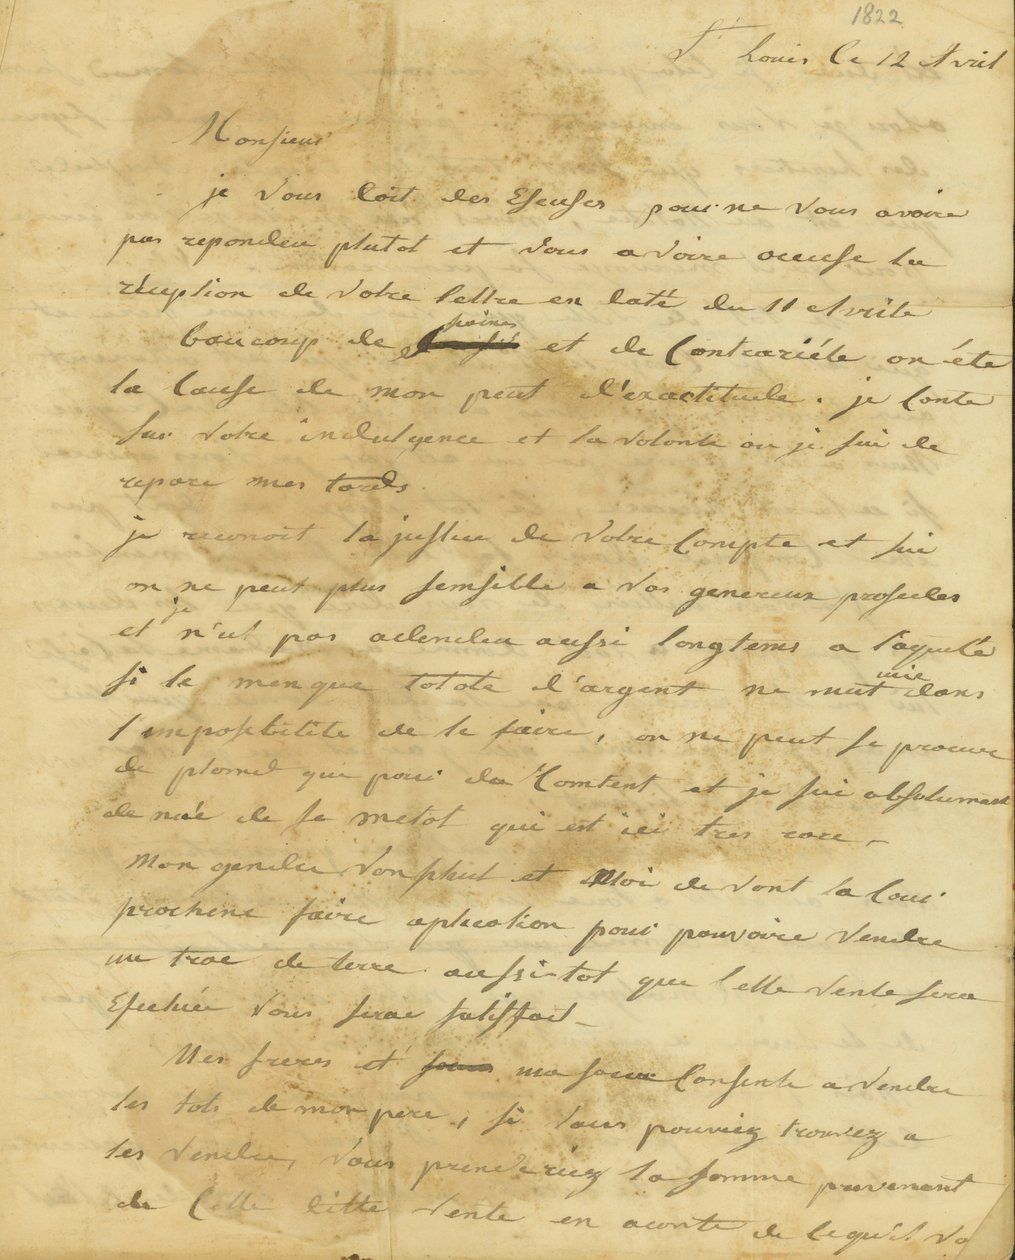 1822
St Louis le 12 Avril
Monsieur
je vous doit des Escuses pour ne vous avoire
pas repondeu plutot et vous avoire accuse la
réception de votre lettre en daté du 11 Avrile
peines
beaucoup de et de Contrariéte on éte
la Cause de mon peut d'exactitude. je Conte
sur votre indulgence et la volonte ou je sui de
repare mes tords
je reconoit la justice de votre Compte et sui
on ne peut plus sensible a vos genereux procedes
je
et n'ut pas adendeu aussi longtems a l'aquité
si le menque totote d'argent ne mut mie dans
l'imposibilite de le faire, on ne peut se procure
de plomd que pour du Comtent et je sui absolument
denué de se metot qui est ici tres rare.
Mon gendre Vonphul et Moi devont la Cour
prochene faire aplication pour pouvoire vendre
un trac de terre aussitot que Cette vente sera
Efectuée vous serai satisfait.
Mes freres et ma soeur Consente a vendre
les lots de mon pere, si vous pouviez trouvez a
les vendre, vous prenderiez la somme provenant
de Cette ditte vente en aconte de lequ'il vo